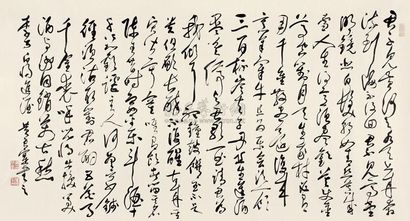 君不見黃河之水天上來奔
流到海不復回君不見高堂
明鏡悲白髮朝如青絲暮成
雪人生得意須盡歡莫使金
尊空對月天生我材必有
用千金散盡還復來
烹羊宰牛且為樂會須一飲
三百杯岑夫子丹丘生進酒
君莫停與君歌一曲請君為
我傾耳聽鐘鼓饌玉不足
貴但願長醉不願醒古來聖
賢皆寂寞惟有飲者留其名
陳王昔時宴平樂斗酒十
千恣歡謔主人何為言少錢
徑須沽取對君酌五花馬
千金裘呼兒將出換美
酒與爾同銷萬古愁
李白將進酒